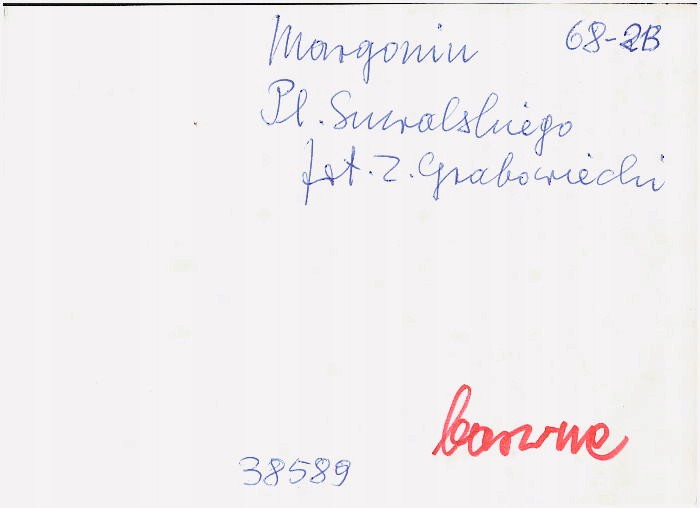 Margonin 68-2B
Pl. Smralskiego
fot. Z. Grabowiecki
barwne
38589